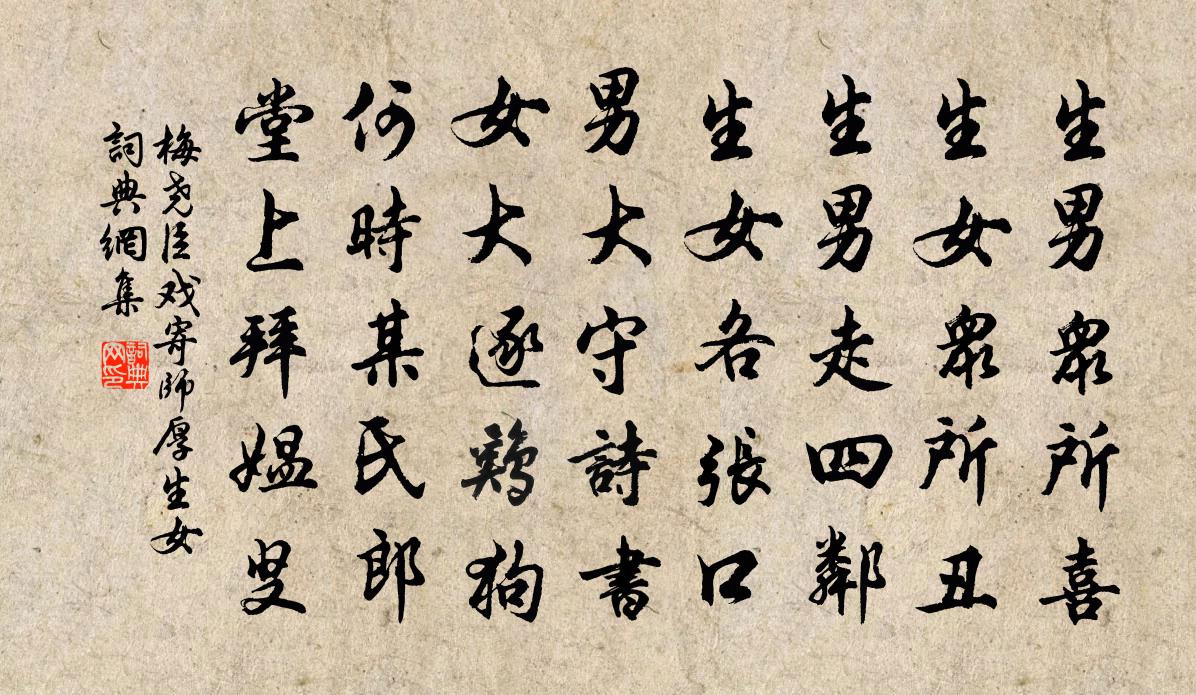 生男衆所喜
生女衆所丑
生男走四鄰
生女各張口
男大守詩書
女大逐鷄狗
何時某氏郎
堂上拜媪叟
梅尧臣戏寄師厚生女
詞典網集
詞典网印